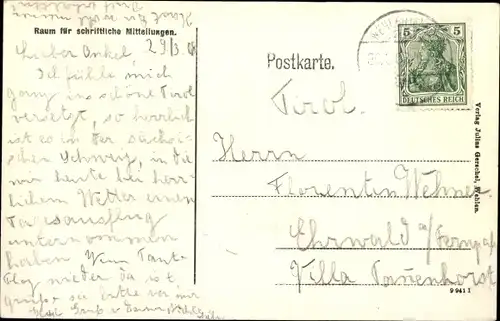 Raum für schriftliche Mitteilungen.
Lieber Onkel, 29/3
Ich fühle mich
ganz ins schöne Tirol
versetzt, so herrlich
ist es in der sächsi-
schen Schweiz, in die
wir heute bei herr-
lichem Wetter einen
Tagesausflug
unternommen
haben. Wenn Tante
wieder da ist,
grüße sie bitte von mir
Postkarte.
5 5
DEUTSCHES REICH
Tirol.
Herrn
Florentin Wehner
Ehrwald a/Fernpaß
Villa Tannenhorst
Verlag Julius Gerschel, Wehlen.
9 941 I